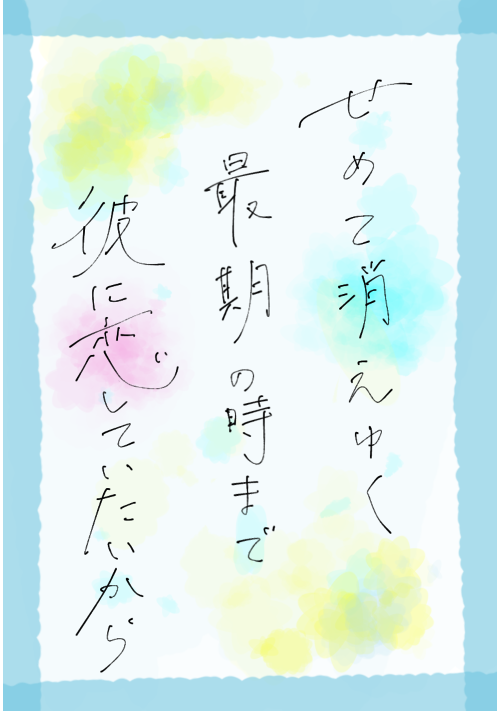 せめて消えゆく
最期の時まで
彼に恋していたいから